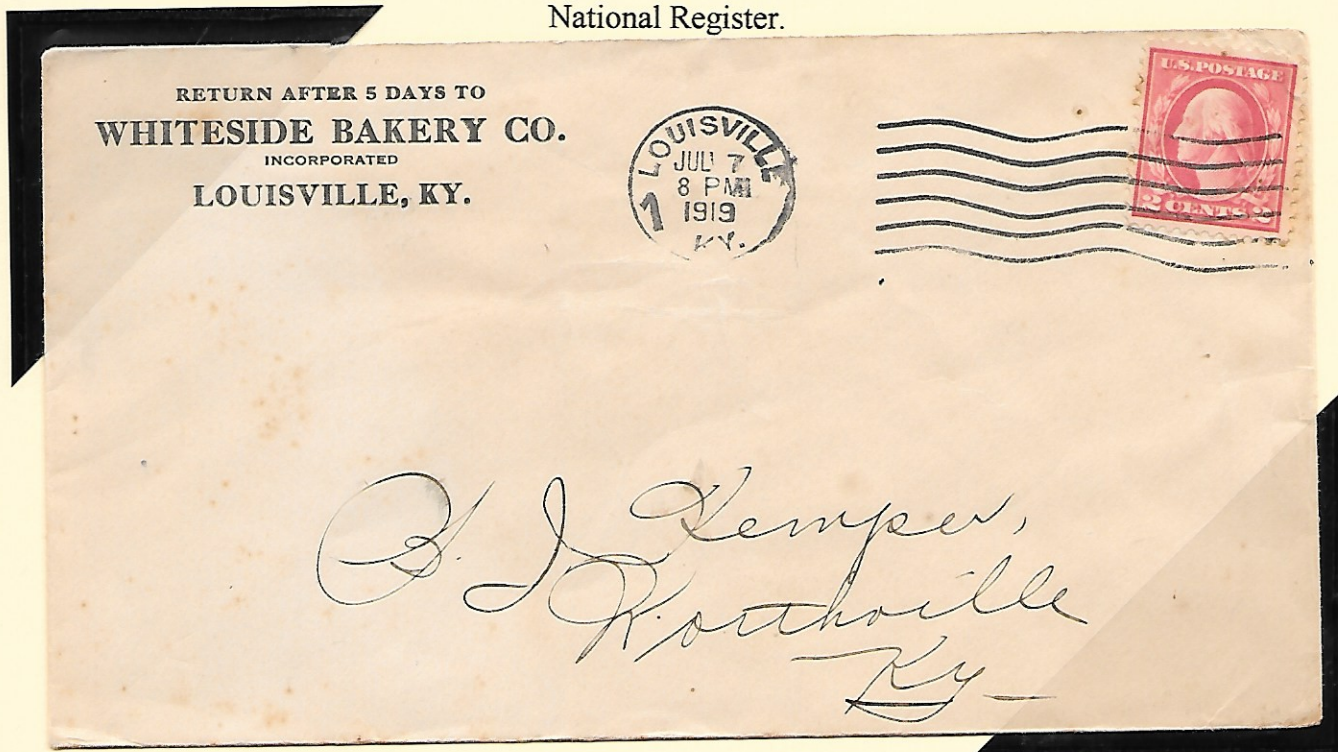 National Register.
RETURN AFTER 5 DAYS TO
WHITESIDE BAKERY CO.
INCORPORATED
LOUISVILLE, KY.
LOUISVILLE
JUL 7
8 PM
1919
KY.
1
U.S. POSTAGE
2 CENTS 2
J. Kemper,
Ky